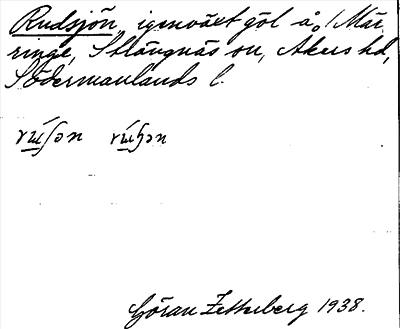 Rudsjön, igenväxt göl å Mär
ringe, Strängnäs sn, Åkers hd,
Södermanlands l.
Göran Zetterberg 1938.